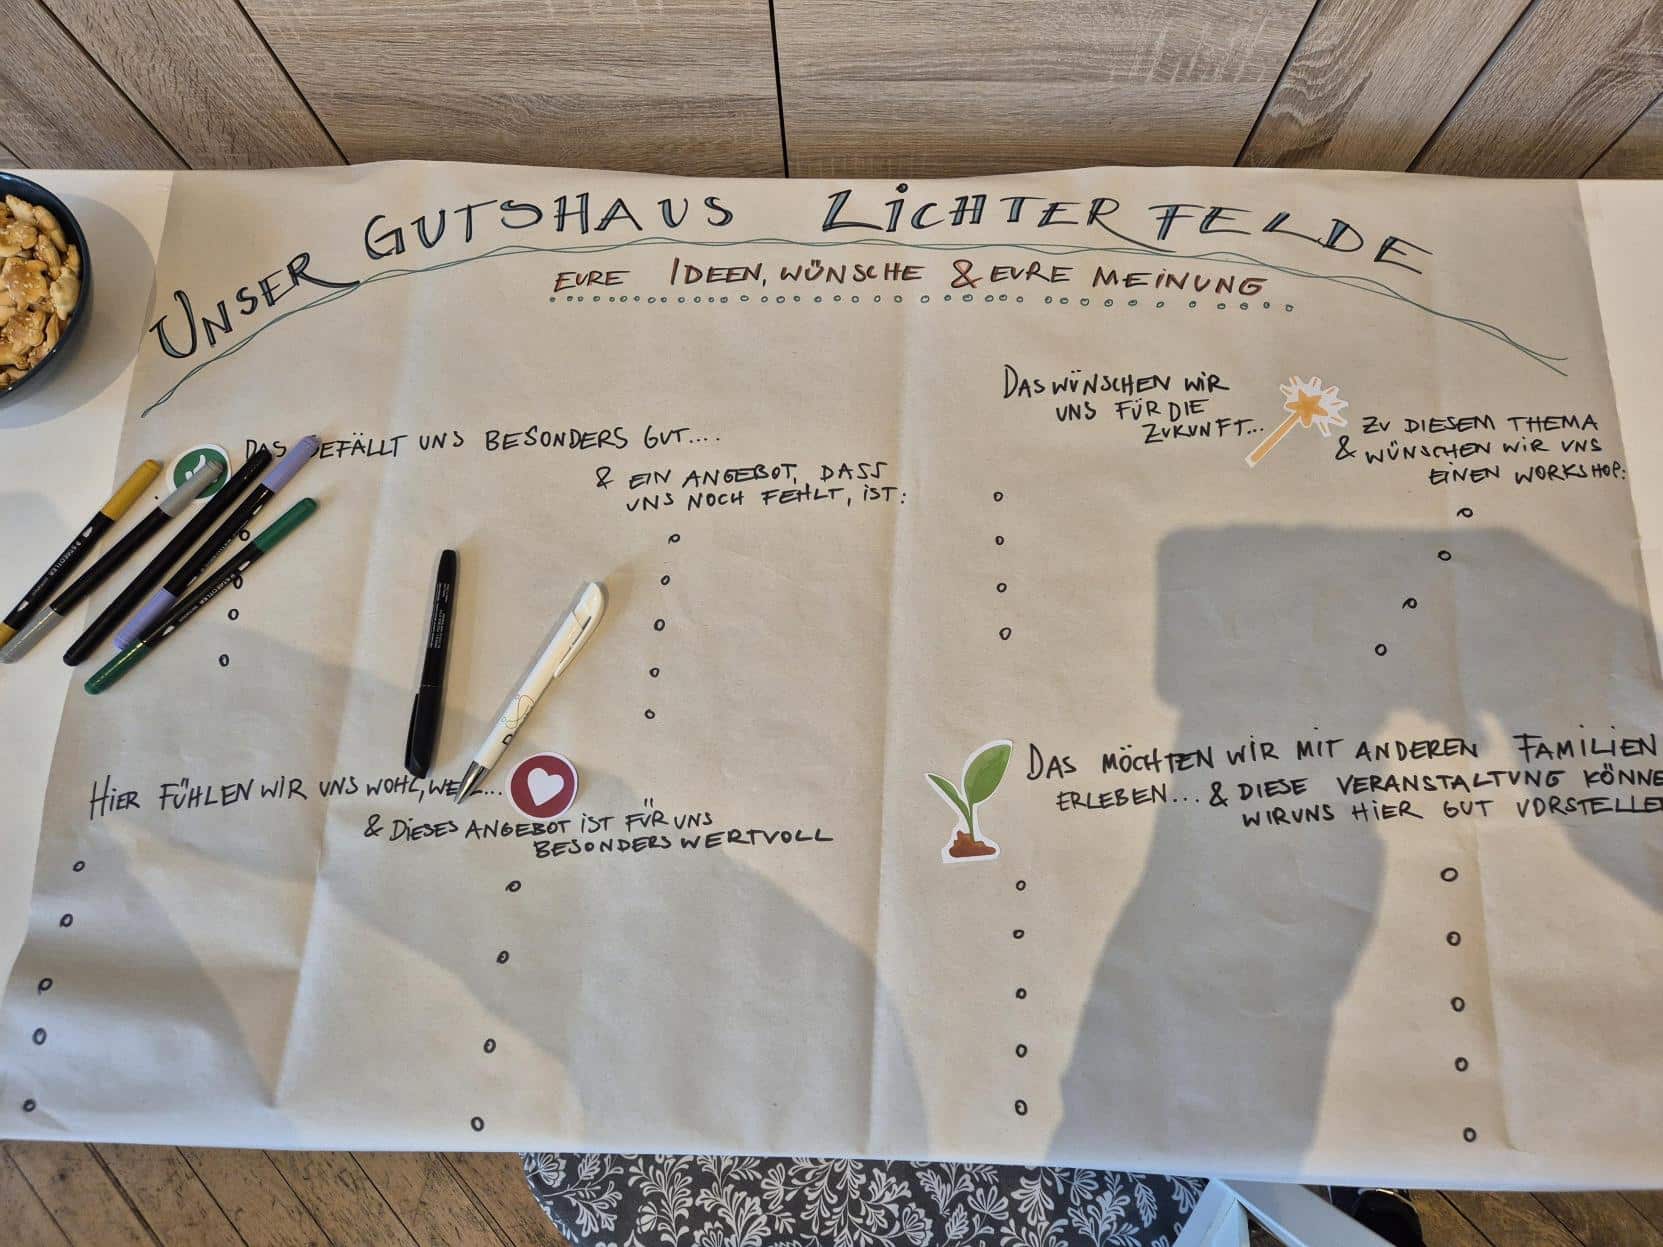 UNSER GUTSHAUS LICHTERFELDE
EURE IDEEN, WÜNSCHE & EURE MEINUNG
DAS GEFÄLLT UNS BESONDERS GUT....
& EIN ANGEBOT, DASS
UNS NOCH FEHLT, IST:
DAS WÜNSCHEN WIR
UNS FÜR DIE
ZUKUNFT...
ZU DIESEM THEMA
& WÜNSCHEN WIR UNS
EINEN WORKSHOP:
HIER FÜHLEN WIR UNS WOHL, WEIL...
& DIESES ANGEBOT IST FÜR UNS
BESONDERS WERTVOLL
DAS MÖCHTEN WIR MIT ANDEREN FAMILIEN
ERLEBEN... & DIESE VERANSTALTUNG KÖNNE
WIR UNS HIER GUT VORSTELLE
STAEDTLER
STAEDTLER